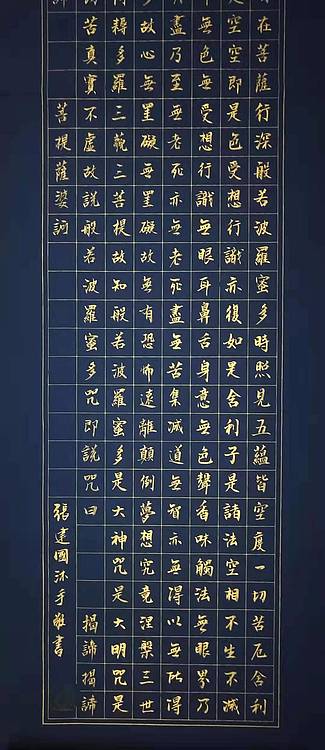 在菩薩行深般若波羅蜜多時照見五蘊皆空度一切苦厄舍利
空空即是色受想行識亦復如是舍利子是諸法空相不生不滅
無色無受想行識無眼耳鼻舌身意無色聲香味觸法無眼界乃
盡乃至無老死亦無老死盡無苦集滅道無智亦無得以無所得
故心無罣礙無罣礙故無有恐怖遠離顛倒夢想究竟涅槃三世
耨多羅三藐三菩提故知般若波羅蜜多是大神咒是大明咒是
苦真實不虛故說般若波羅蜜多咒即說咒曰揭諦揭諦
菩提薩婆訶
張建國沐手敬書